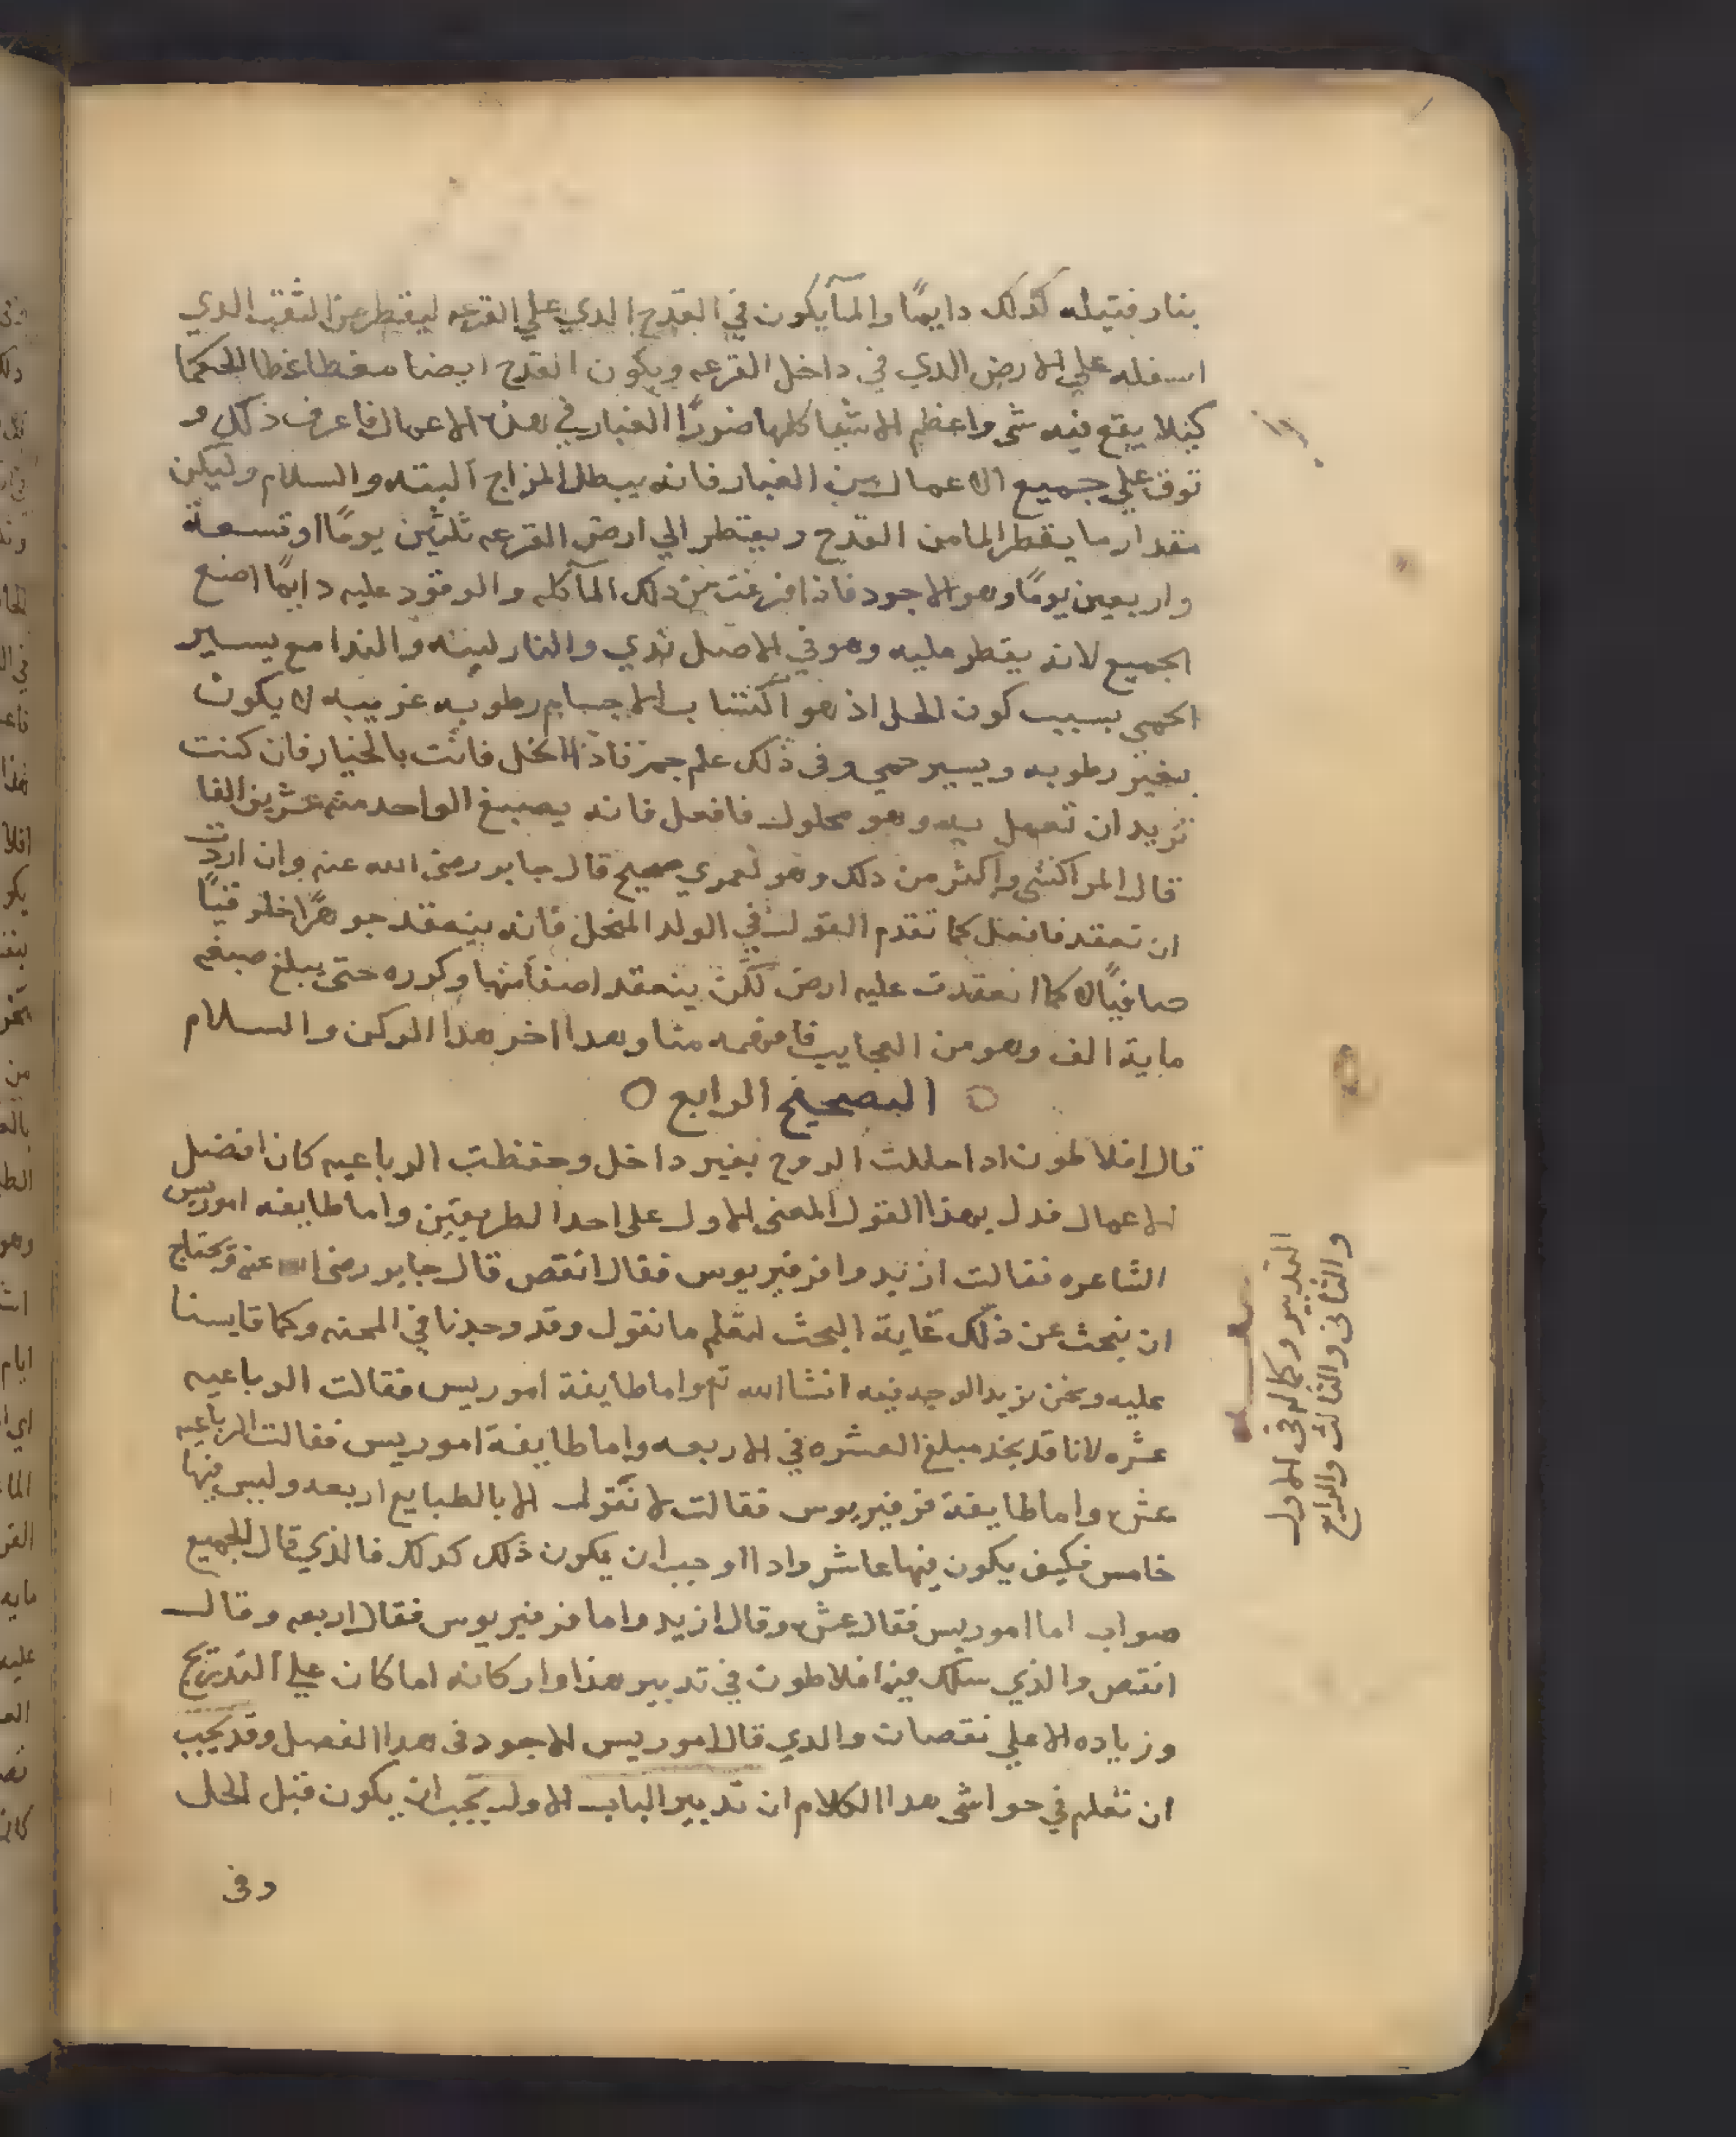 بنار فتيله كذلك دايمًا والمآ يكون في القدح الدي علي القرعه ليقطر من الثقب الدي
اسفله علي الارض الدي في داخل القرعه ويكون القدح ايضا مغطا غطا محكما
كيلا يقع فيه شى واعظم الاشيا كلها ضررًا الغبار في هذه الاعمال فاعرف ذلك و
توق علي جميع الاعمال من الغبار فانه يبطل المزاج البته والسلام وليكن
مقدار ما يقطر الما من القدح ويقطر الي ارض القرعه ثلثين يومًا او تسعة
واربعين يومًا وهو الاجود فاذا فرغت من دلك المآ كله والوقود عليه دايمًا اصنع
الجميع لانه يقطر عليه وهو في الاصل ندي والنار لينه والندا مع يسير
الحمي بسبب كون الحل اذ هو اكتساب الاجسام رطوبه غريبه لا يكون
بغير رطوبه ويسير حمي وفى ذلك علم جم فاذا انحل فانت بالخيار فان كنت
تريد ان تعمل به وهو محلول فافعل فانه يصبغ الواحد منه عشرين الفا
قال المراكشى واكثر من دلك وهو لعمري صحيح قال جابر رضى الله عنه وان اردت
ان تعقد فافعل كما تقدم القول في الولد المنحل فانه ينعقد جوهرًا خلوقيًا
صافيًا لا كما انعقدت عليه ارض لكن ينعقد اصفا منها وكرره حتى يبلغ صبغه
ماية الف وهو من العجايب فافهمه منا وهدا اخر هدا الركن والسلام
○ المصحح الرابع ○
قال افلاطون ادا حللت الروح بغير داخل وحفظت الرباعيه كان افضل
الاعمال فدل بهذا القول المعنى الاول على احد الطريقين واما طايفه اموريس
الشاعره فقالت ازيد وا فرفيريوس فقال انقص قال جابر رضى الله عنه ونحتاج
ان نبحث عن ذلك غاية البحث لنعلم ما نقول وقد وجدنا في المحنه وكما قايسنا
عليه ونحن نريد الوجه فيه انشا الله تع واما طايفة اموريس فقالت الرباعيه
عشره لانا قد نجد مبلغ العشره في الاربعه واما طايفة اموريس فقالت الرباعيه
عشره واما طايفة فرفيريوس فقالت لا نقول الا بالطبايع اربعه وليس فيها
خامس فكيف يكون فيها عاشر وادا وجب ان يكون ذلك كدلك فالذي قال الجميع
صواب اما اموريس فقال عشره وقال ازيد واما فرفيريوس فقال اربعه وقال
انقص والذي سلك فيه افلاطون في تدبير هذا واركانه اما كان علي التدريج
وزياده لا علي نقصان والدي قال اموريس الاجود فى هدا الفصل وقد يجب
ان تعلم في حواشى هدا الكلام ان تدبير الباب الاول يجب ان يكون قبل الحل
وفى
التدبير وكماله فى الاول
والثانى والثالث والرابع